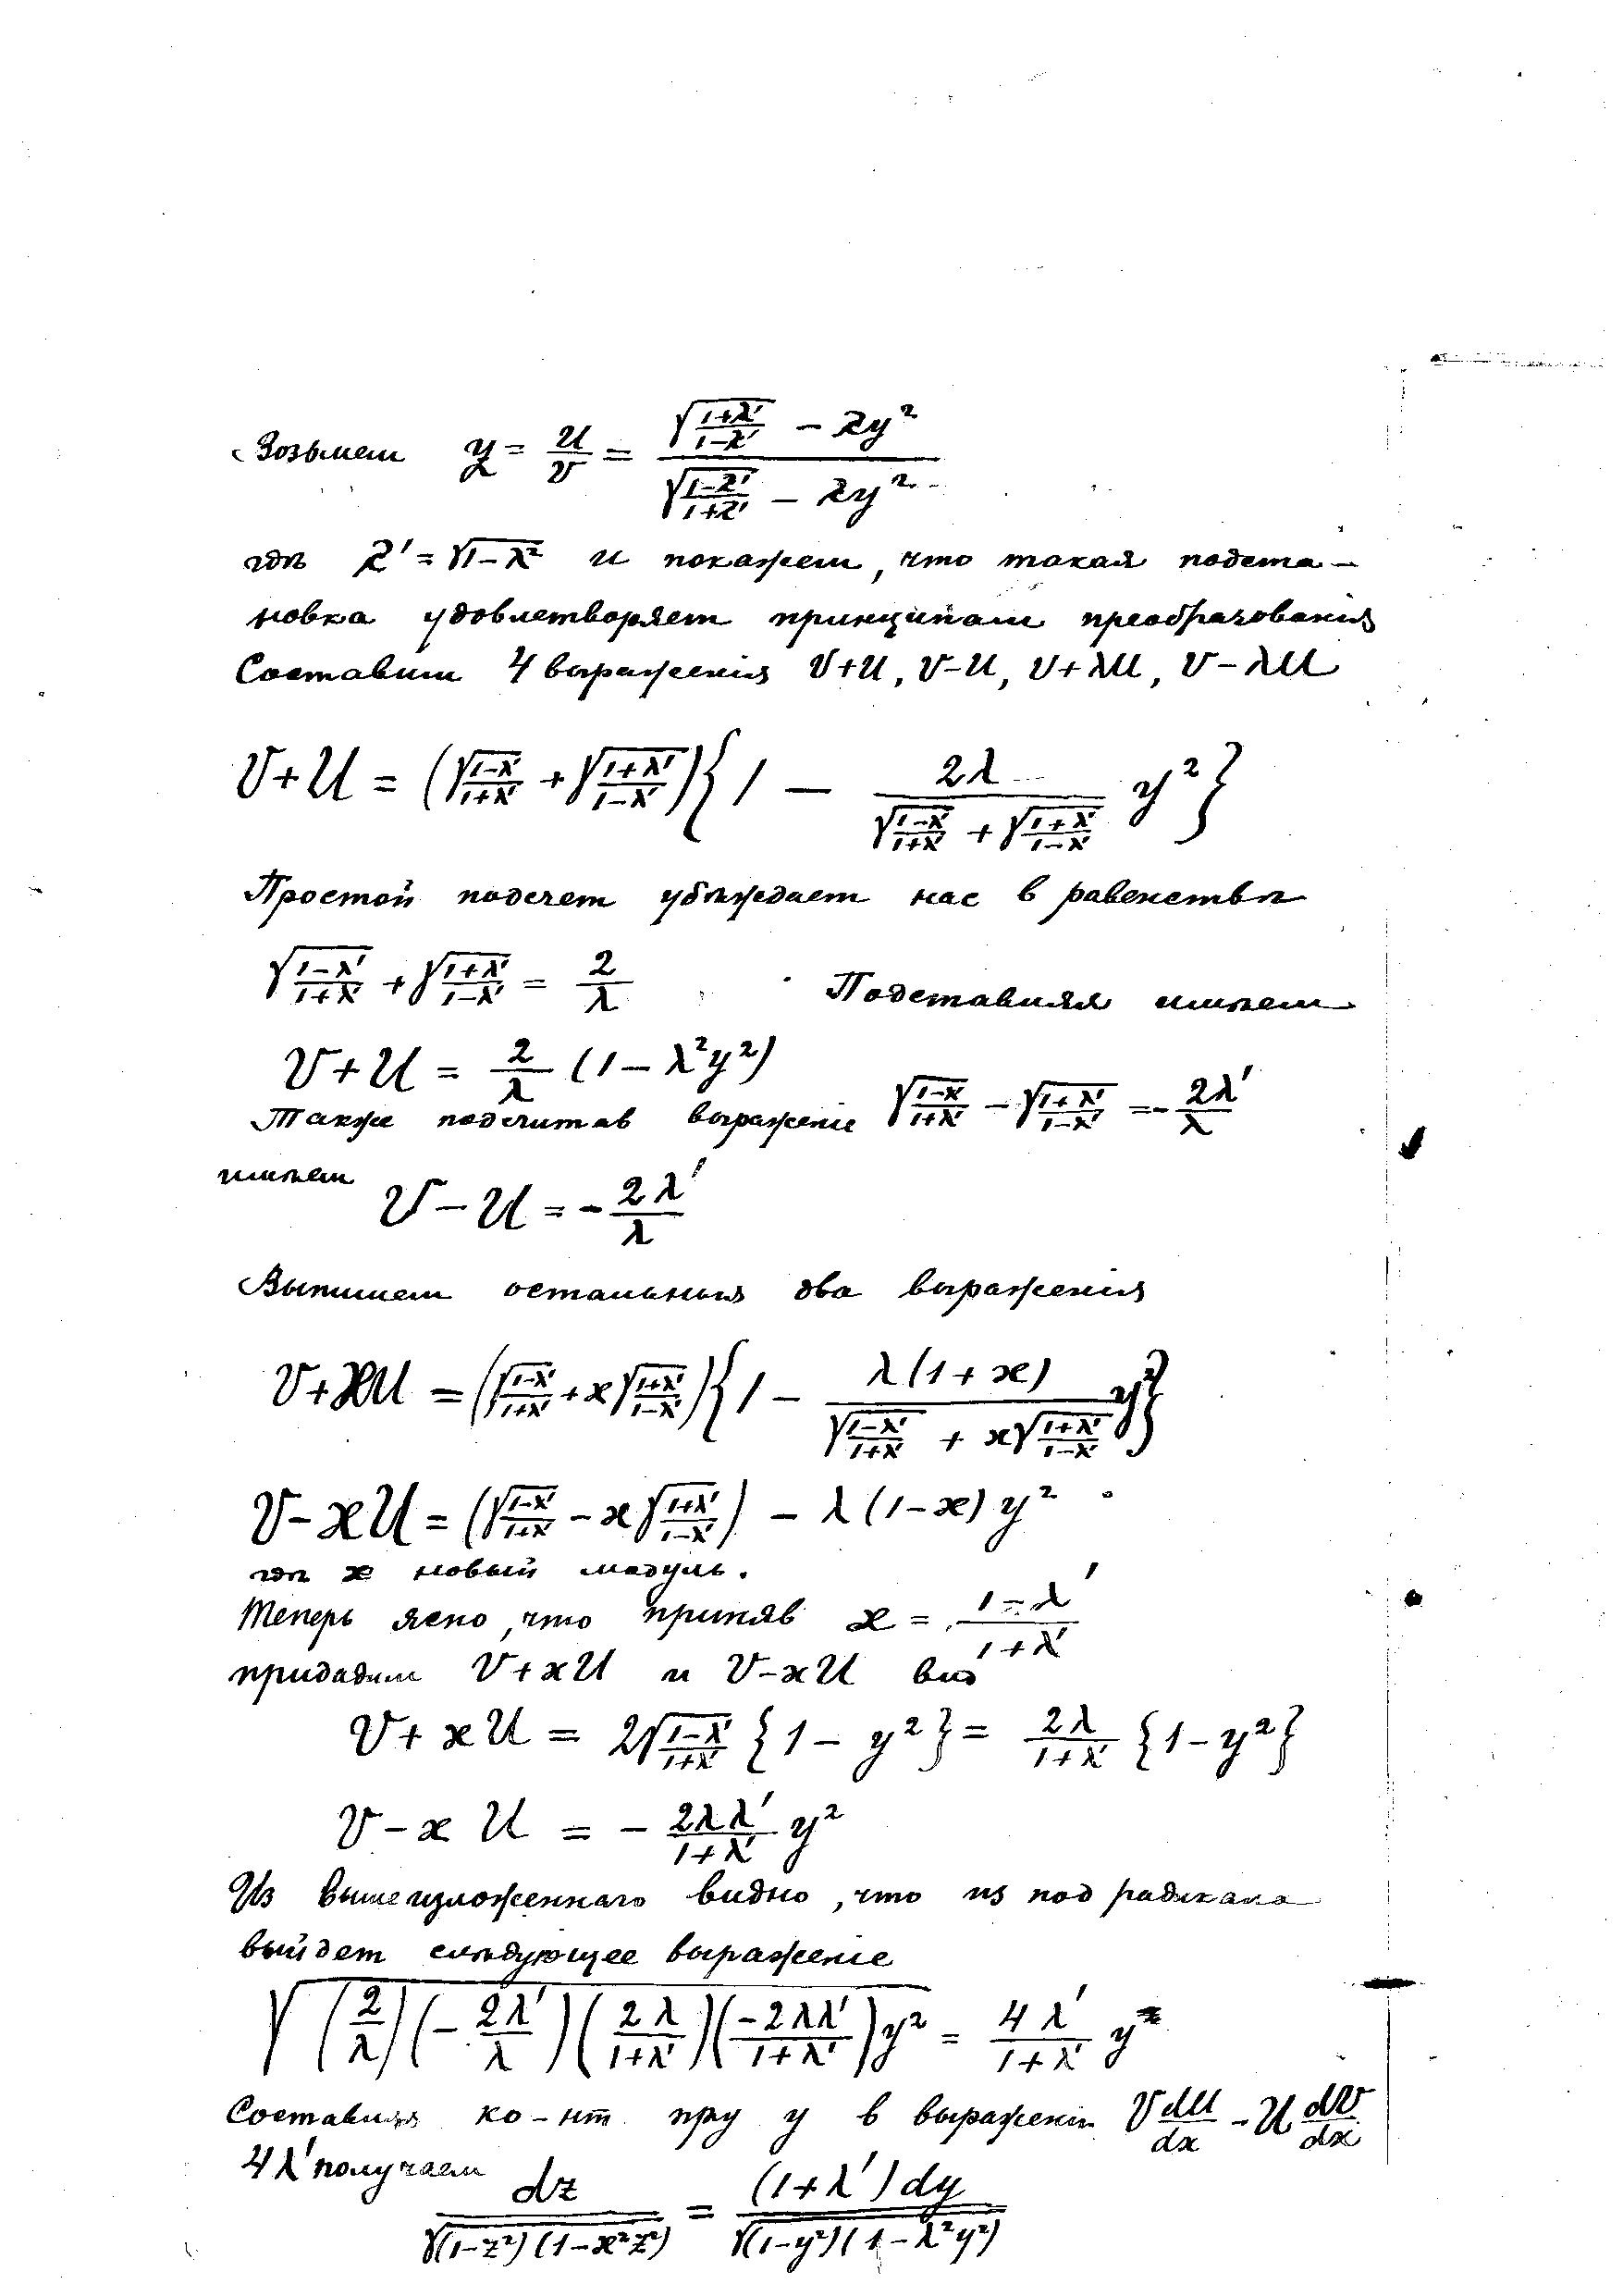 Возьмем z = U/V = (√((1+λ')/(1-λ')) - λy²) / (√((1-λ')/(1+λ')) - λy²)
гдѣ λ' = √(1-λ²) и покажем, что такая подста-
новка удовлетворяет принципам преобразования
Составим 4 выраженія V+U, V-U, V+λU, V-λU
V+U = (√((1-λ')/(1+λ')) + √((1+λ')/(1-λ'))){1 - 2λ/(√((1-λ')/(1+λ')) + √((1+λ')/(1-λ'))) y²}
Простой подсчет убѣждает нас в равенствѣ
√((1-λ')/(1+λ')) + √((1+λ')/(1-λ')) = 2/λ Подставляя имѣем
V+U = 2/λ (1-λ²y²)
Также подсчитав выраженіе √((1-λ')/(1+λ')) - √((1+λ')/(1-λ')) = -2λ'/λ
имѣем V-U = -2λ'/λ
Выпишем остальныя два выраженія
V+ϰU = (√((1-λ')/(1+λ')) + ϰ√((1+λ')/(1-λ'))){1 - λ(1+ϰ)/(√((1-λ')/(1+λ')) + ϰ√((1+λ')/(1-λ'))) y²}
V-ϰU = (√((1-λ')/(1+λ')) - ϰ√((1+λ')/(1-λ'))) - λ(1-ϰ)y²
гдѣ ϰ новый модуль.
Теперь ясно, что приняв ϰ = (1-λ')/(1+λ')
придадим V+ϰU и V-ϰU вид
V+ϰU = 2√((1-λ')/(1+λ')){1-y²} = 2λ/(1+λ'){1-y²}
V-ϰU = -2λλ'/(1+λ') y²
Из вышеизложеннаго видно, что из под радикала
выйдет слѣдующее выраженіе
√((2/λ)(-2λ'/λ)(2λ/(1+λ'))(-2λλ'/(1+λ'))y²) = 4λ'/(1+λ') y²
Составляя ко-нт при y в выраженіи V dU/dx - U dV/dx
4λ' получаем
dz/√((1-z²)(1-ϰ²z²)) = (1+λ')dy/√((1-y²)(1-λ²y²))